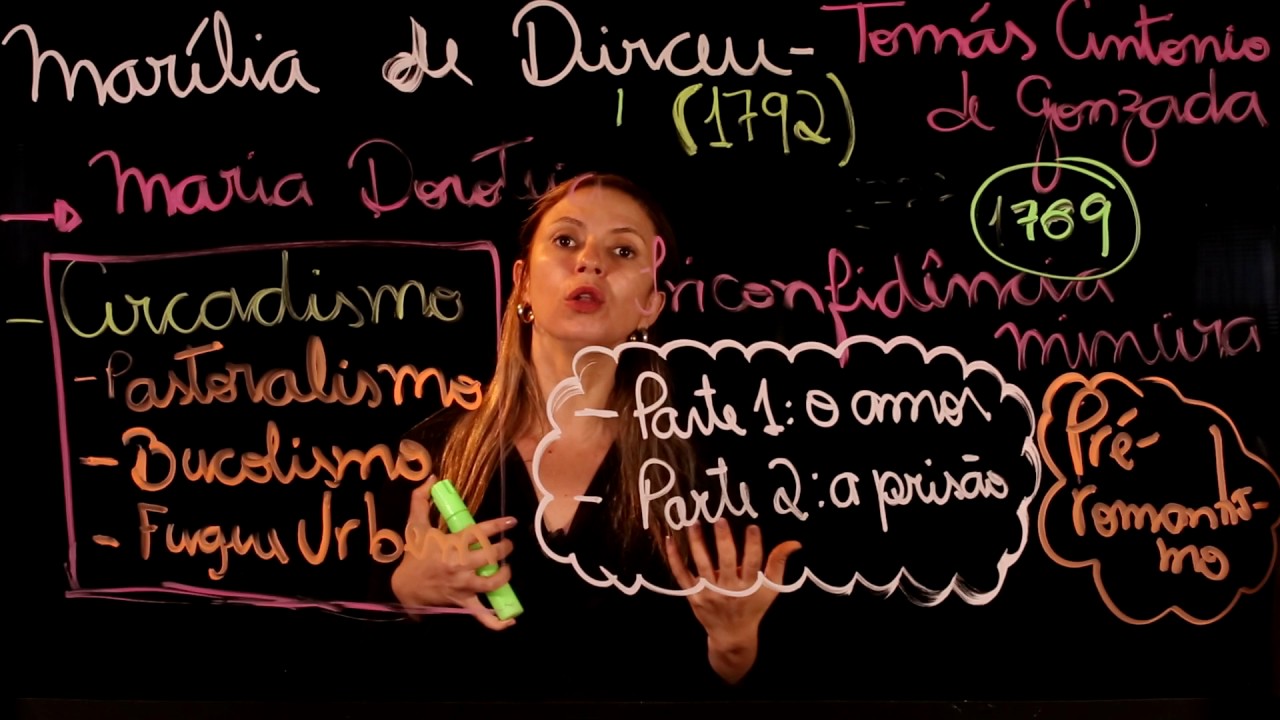 Marília de Dirceu -
Tomás Antonio
de Gonzada
(1792)
Maria
1789
Inconfidência
mineira
- Arcadismo
- Pastoralismo
- Bucolismo
- Fugere Urbem
- Parte 1: o amor
- Parte 2: a prisão
Pré-
romantis-
mo